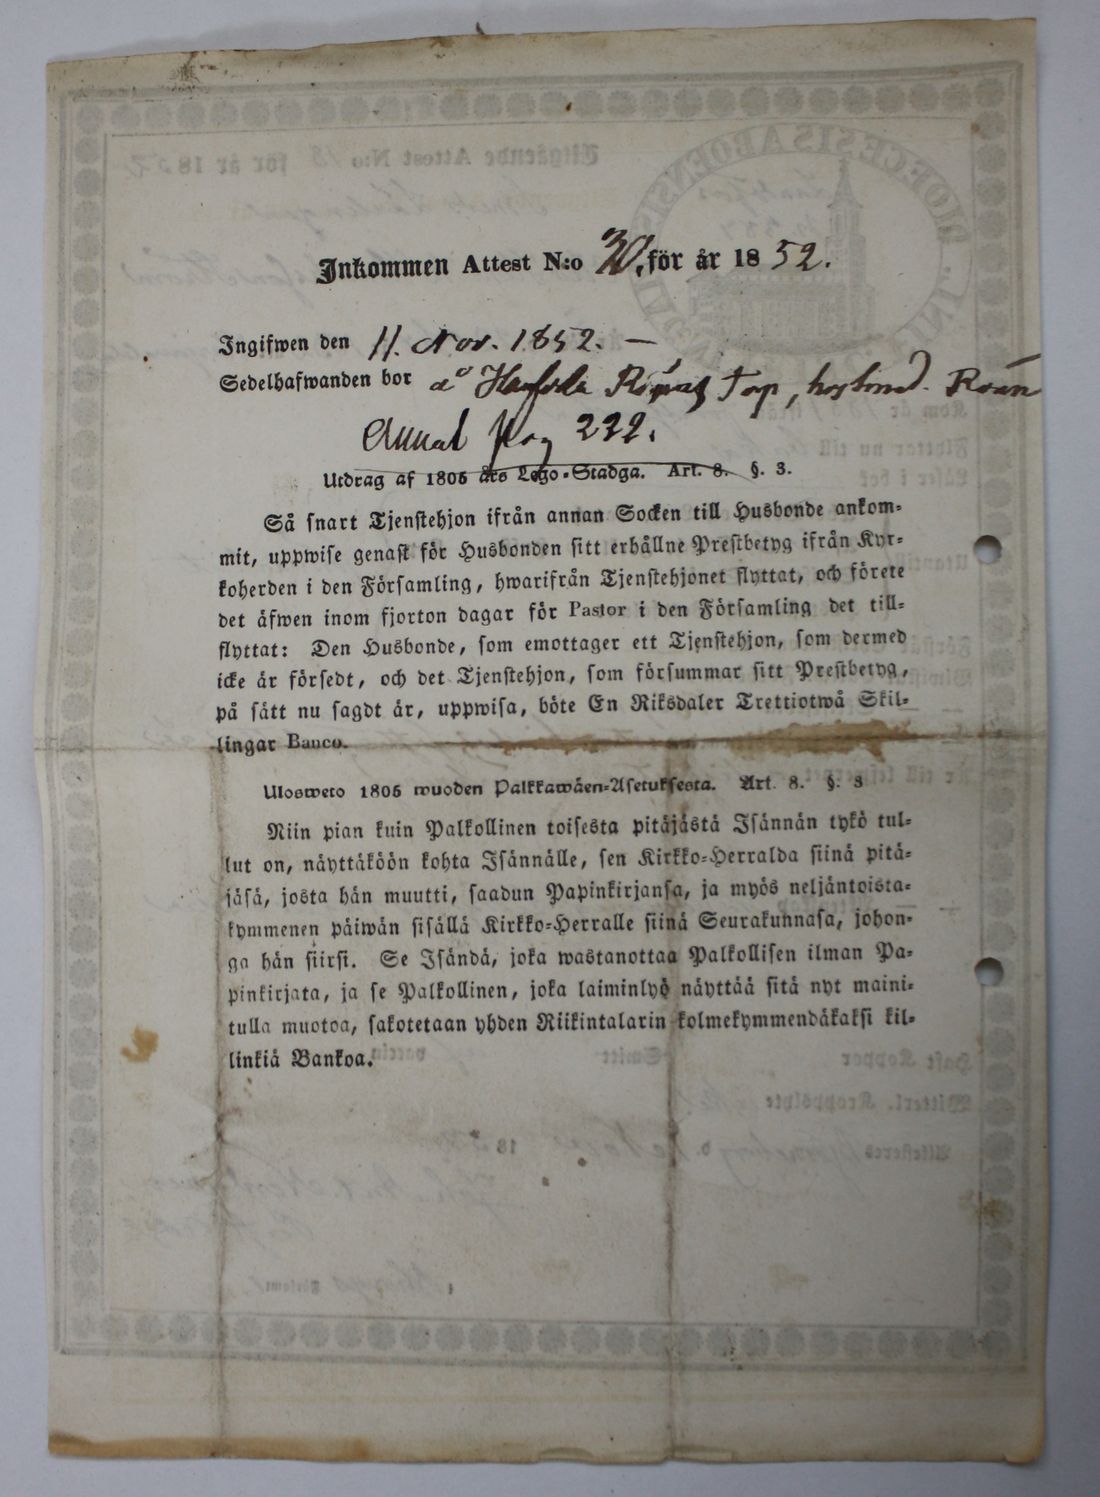 Inkommen Attest N:o 30, för år 1852.
Ingifwen den 11. Nov. 1852. —
Sedelhafwanden bor å Torp,
Annal pag 222.
Utdrag af 1805 års Lego-Stadga. Art. 8. §. 3.
Så snart Tjenstehjon ifrån annan Socken till Husbonde ankom-
mit, uppwise genast för Husbonden sitt erhållne Prestbetyg ifrån Kyr-
koherden i den Församling, hwarifrån Tjenstehjonet flyttat, och förete
det äfwen inom fjorton dagar för Pastor i den Församling det till-
flyttat: Den Husbonde, som emottager ett Tjenstehjon, som dermed
icke är försedt, och det Tjenstehjon, som försummar sitt Prestbetyg,
på sätt nu sagdt är, uppwisa, böte En Riksdaler Trettiotwå Skil-
lingar Banco.
Ulosweto 1805 wuoden Palkkawäen-Asetuksesta. Art. 8. §. 3
Niin pian kuin Palkollinen toisesta pitäjästä Isännän tykö tul-
lut on, näyttäköön kohta Isännälle, sen Kirkko-Herralda siinä pitä-
jäsä, josta hän muutti, saadun Papinkirjansa, ja myös neljäntoista-
kymmenen päiwän sisällä Kirkko-Herralle siinä Seurakunnasa, johon-
ga hän siirsi. Se Isändä, joka wastanottaa Palkollisen ilman Pa-
pinkirjata, ja se Palkollinen, joka laiminlyö näyttää sitä nyt maini-
tulla muotoa, sakotetaan yhden Riikintalarin kolmekymmendäkaksi kil-
linkiä Bankoa.